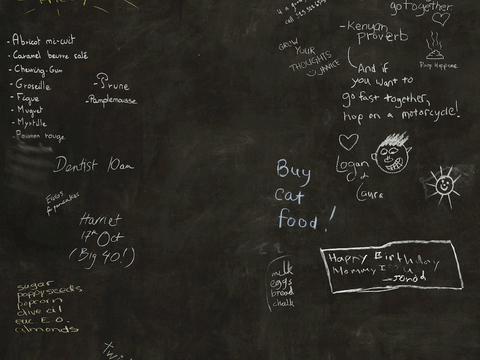 go together.
-Kenyan
proverb
And if
you want to
go fast together,
hop on a motorcycle!
Poop Happens
GROW
YOUR
THOUGHTS
-Abricot mi-cuit
-Caramel beurre salé
-Chewing-Gum
-Groseille
-Figue
-Muguet
-Myrtille
-Poumon rouge
-Prune
-Pamplemousse
Dentist 10am
Harriet
17th Oct
(Big 40!)
Logan
&
Laura
Buy
cat
food!
milk
eggs
bread
chalk
Happy Birthday
Mommy
-Jarod
sugar
poppyseeds
popcorn
olive oil
almonds